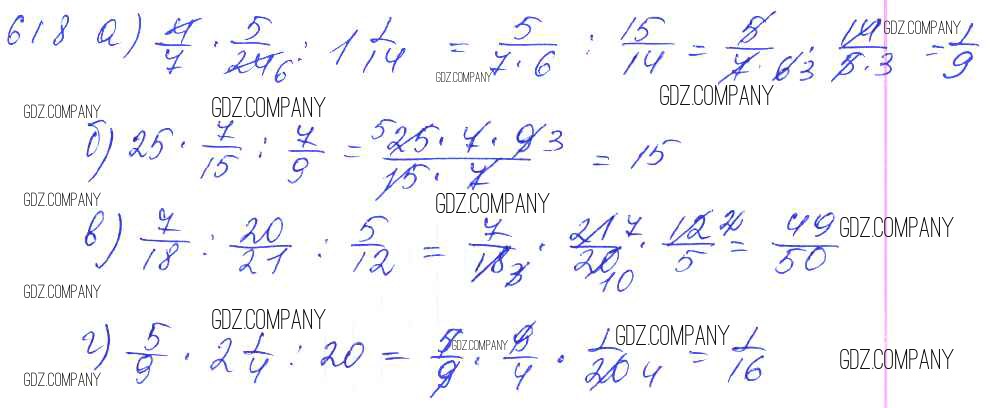 618 а) 4/7 · 5/24 6 : 1 1/14 = 5/(7·6) : 15/14 = 5/(7·6 3) · 14/(5·3) = 1/9
GDZ.COMPANY
GDZ.COMPANY
GDZ.COMPANY GDZ.COMPANY GDZ.COMPANY
б) 25 · 7/15 : 7/9 = (5 25 · 7 · 9 3)/(15 · 7) = 15
GDZ.COMPANY GDZ.COMPANY
в) 7/18 : 20/21 : 5/12 = 7/18 3 · 21 7/20 10 · 12 2/5 = 49/50 GDZ.COMPANY
GDZ.COMPANY
GDZ.COMPANY
г) 5/9 · 2 1/4 : 20 = 5/9 · 9/4 · 1/20 4 = 1/16
GDZ.COMPANY GDZ.COMPANY
GDZ.COMPANY GDZ.COMPANY